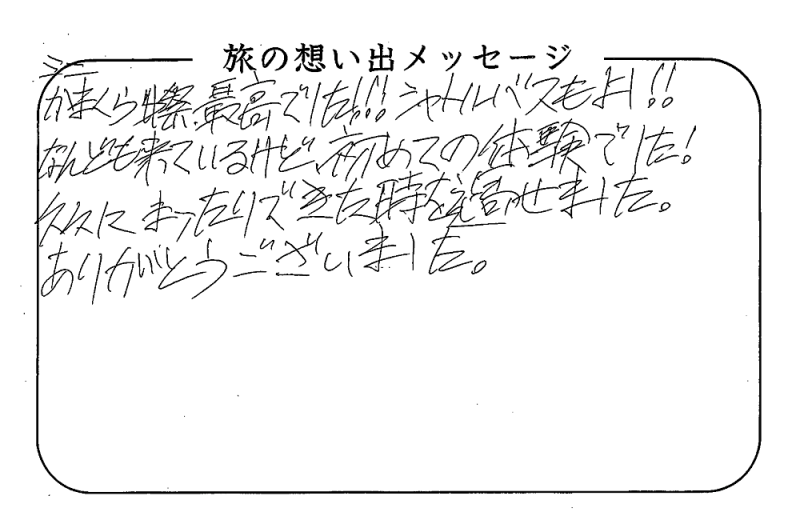 旅の想い出メッセージ
かまくら 最高でした!!! シャトルバスもよし!!
なんども来ているけど、初めての体験でした!
久々にまったりできた時を過せました。
ありがとうございました。